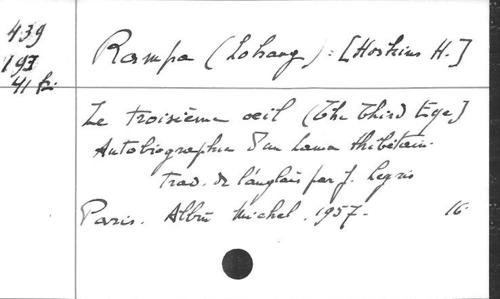 439
193
41 fr.
Rampa (Lobsang) : [Hoskins H.]
Le troisième oeil (The Third Eye]
Autobiographie d'un Lama thibétain.
Trad. de l'anglais par J. Legris
Paris. Albin Michel. 1957. 16